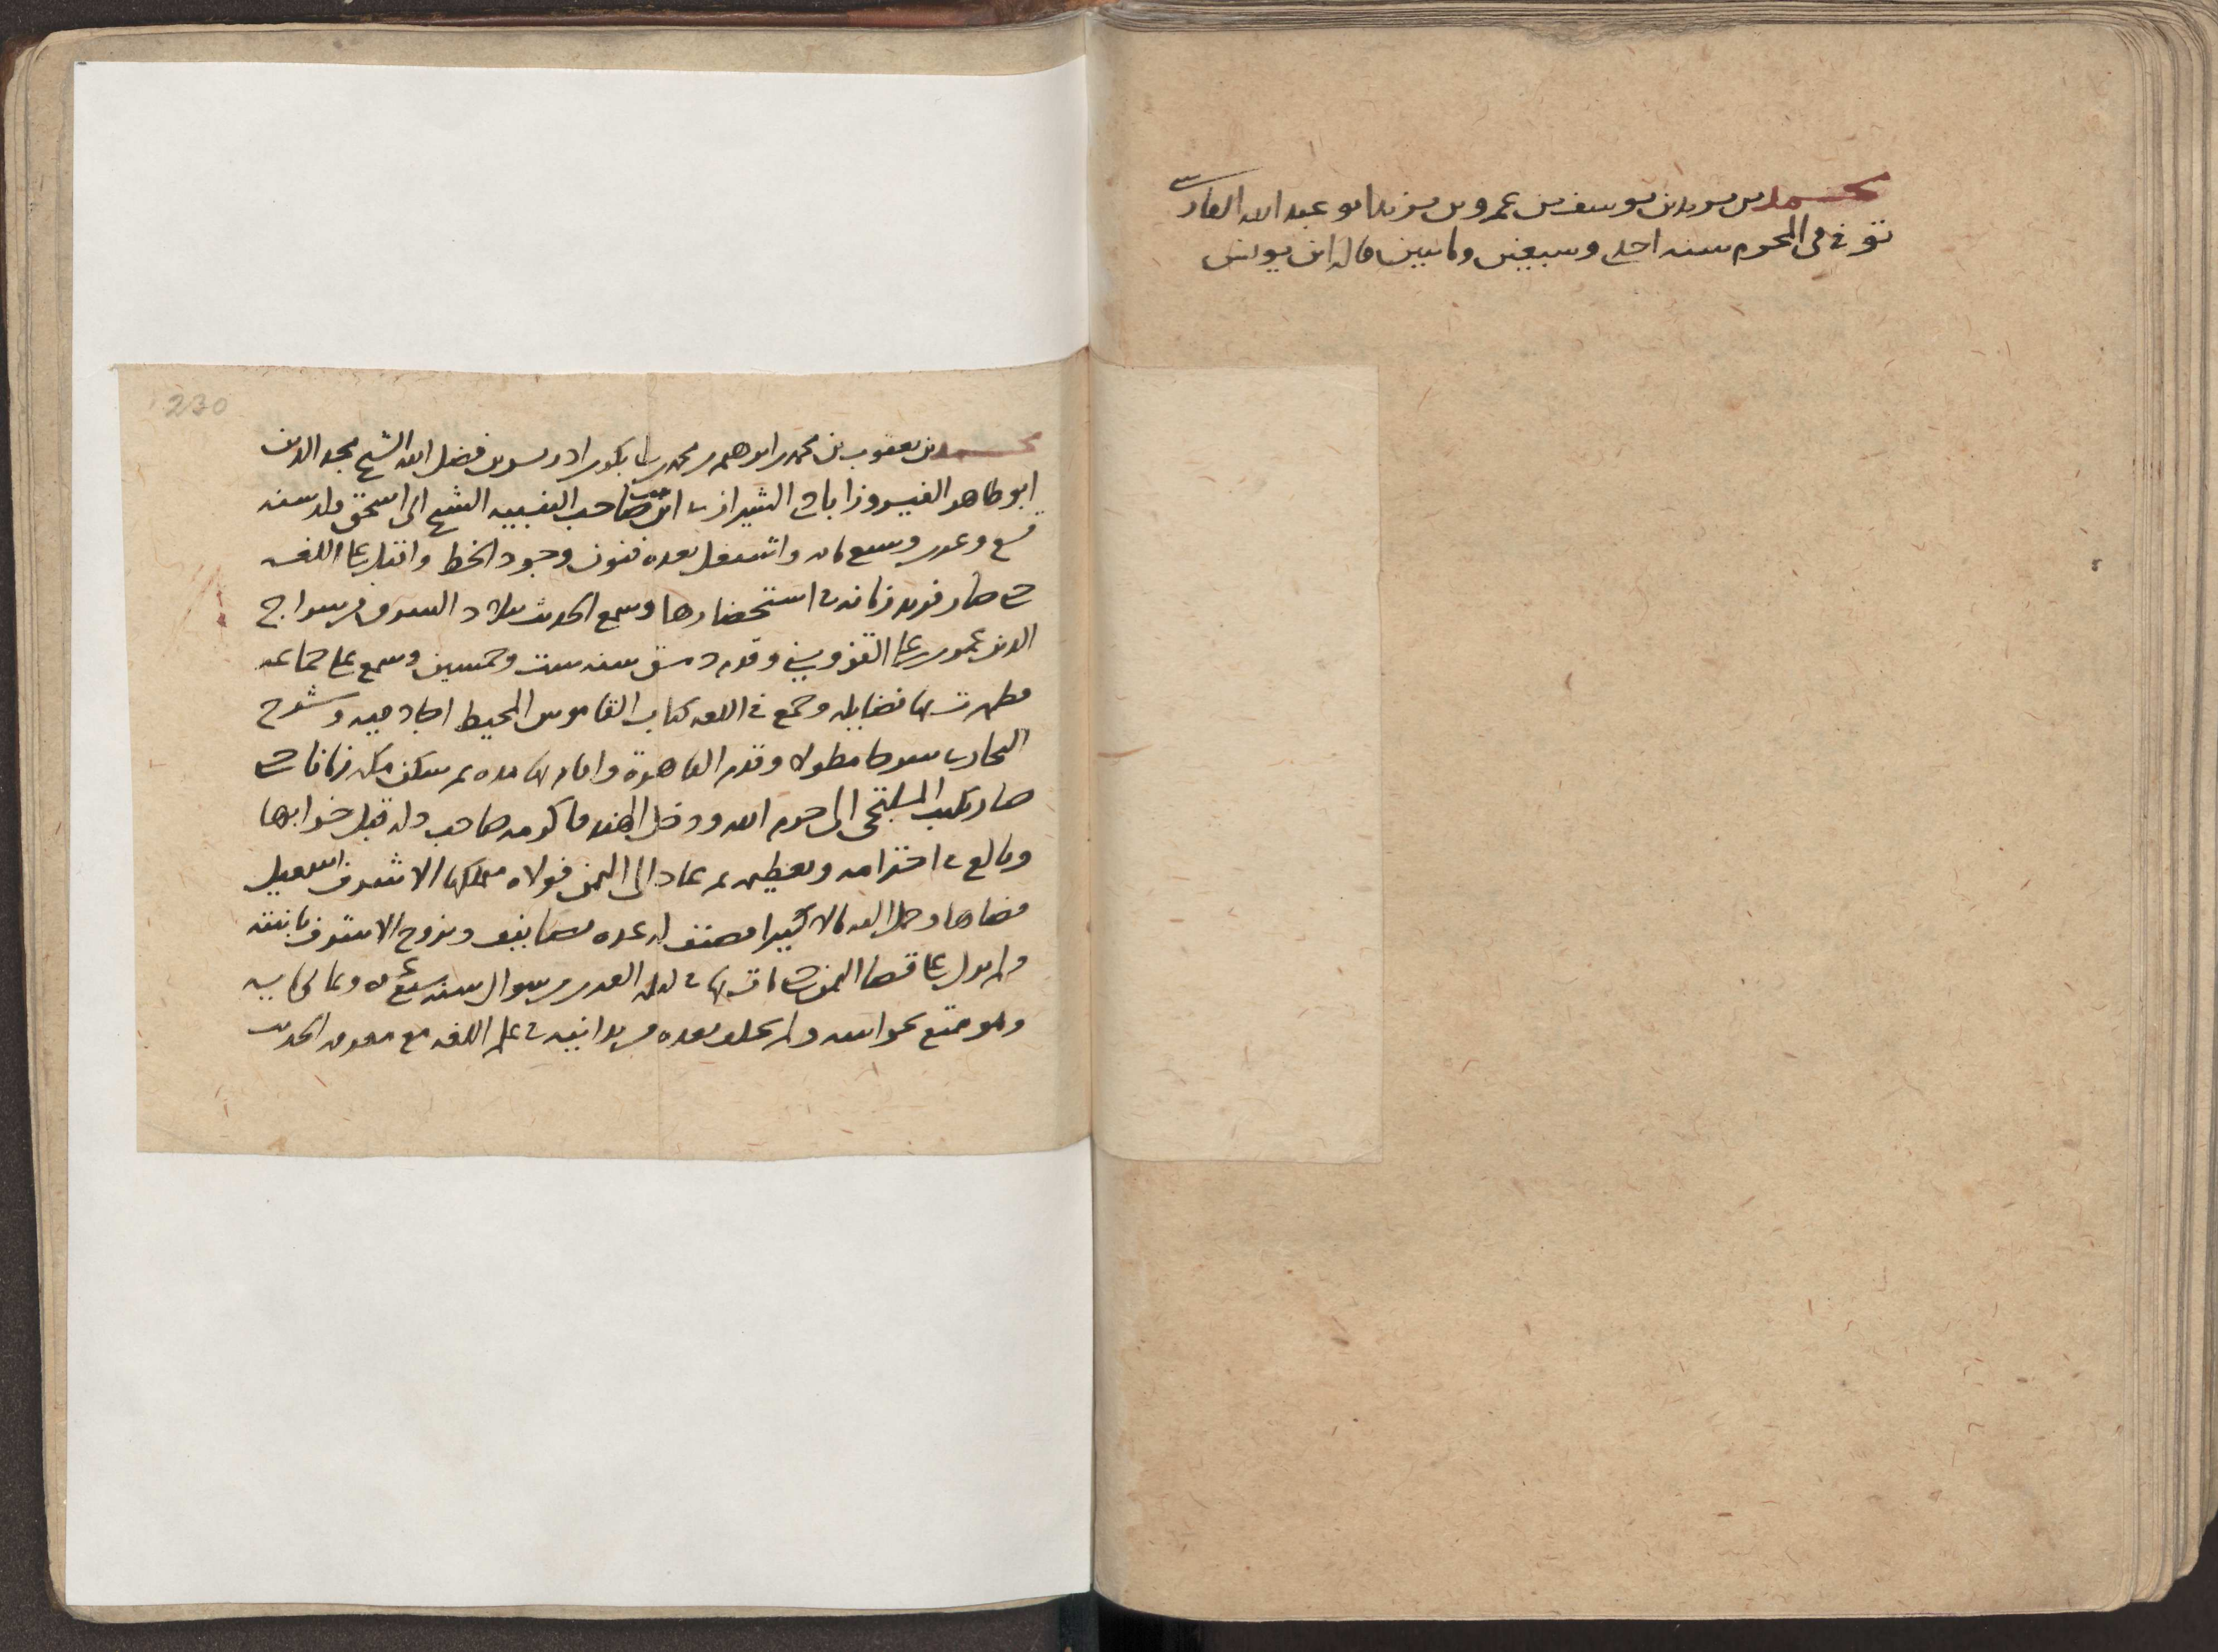 محمد بن يزيد بن يوسف بن عمرو بن يزيد ابو عبد الله الفارسي
توفي في المحرم سنه احدى وسبعين ومايتين قاله ابن يونس
230
محمد بن يعقوب بن محمد بن ابرهيم بن محمد بن ابي بكر بن ادريس بن فضل الله الشيخ مجد الدين
ابو طاهر الفيروزابادي الشيرازي ابن بنت صاحب التنبيه الشيخ ابي اسحق ولد سنه
تسع وعشرين وسبع مايه واشتغل بعده فنون وجود الخط واقبل على اللغه
حتى صار فريد زمانه في استحضارها وسمع الحديث ببلاد الشرق من سراج
الدين عمر بن علي القزويني وقدم دمشق سنه ست وخمسين وسمع على جماعه
فظهرت بها فضايله وجمع في اللغه كتاب القاموس المحيط اجاد فيه وشرح
البخاري شرحا مطولا وقدم القاهرة واقام بها مده ثم سكن مكه زمانا حتى
صار يكتب الملتجي الى حرم الله ودخل الهند فاكرمه صاحب دله قبل خرابها
وبالغ في احترامه وتعظيمه ثم عاد الى اليمن فولاه مملكها الاشرف اسمعيل
قضاها وحمل اليه مالا كثيرا فصنف له عده تصانيف وتزوج الاشرف بابنته
ولم يزل على قضا اليمن حتى مات بها في ليله العشرين من شوال سنه سبع عشره وثماني مايه
وهو متع بحواسه ولم يخلف بعده من يدانيه في علم اللغه مع معرفه الحديث